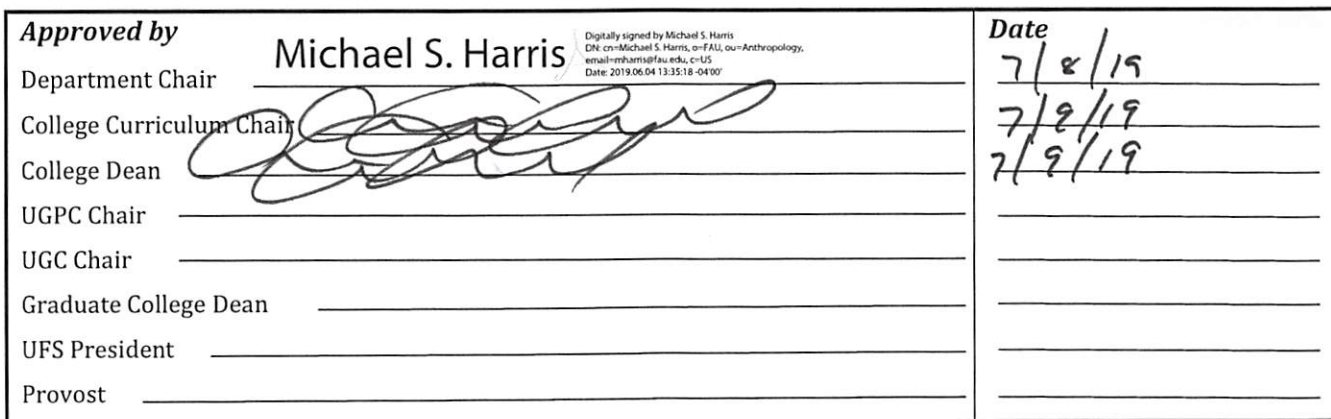 Approved by
Date
Michael S. Harris
Digitally signed by Michael S. Harris
DN: cn=Michael S. Harris, o=FAU, ou=Anthropology,
email=mharris@fau.edu, c=US
Date: 2019.06.04 13:35:18 -04'00'
Department Chair
7/8/19
College Curriculum Chair
7/9/19
College Dean
7/9/19
UGPC Chair
UGC Chair
Graduate College Dean
UFS President
Provost